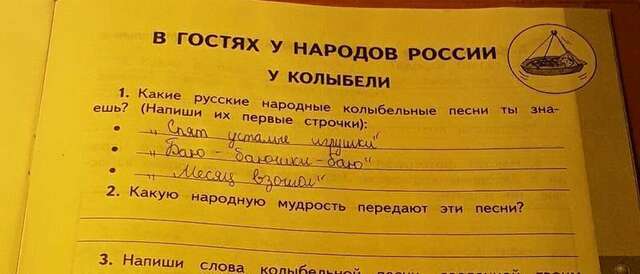 В ГОСТЯХ У НАРОДОВ РОССИИ
У КОЛЫБЕЛИ
1. Какие русские народные колыбельные песни ты зна-
ешь? (Напиши их первые строчки):
• „Спят усталые игрушки"
• „Баю - баюшки - баю"
• „Месяц взошол"
2. Какую народную мудрость передают эти песни?
3. Напиши слова колыбельной песни,